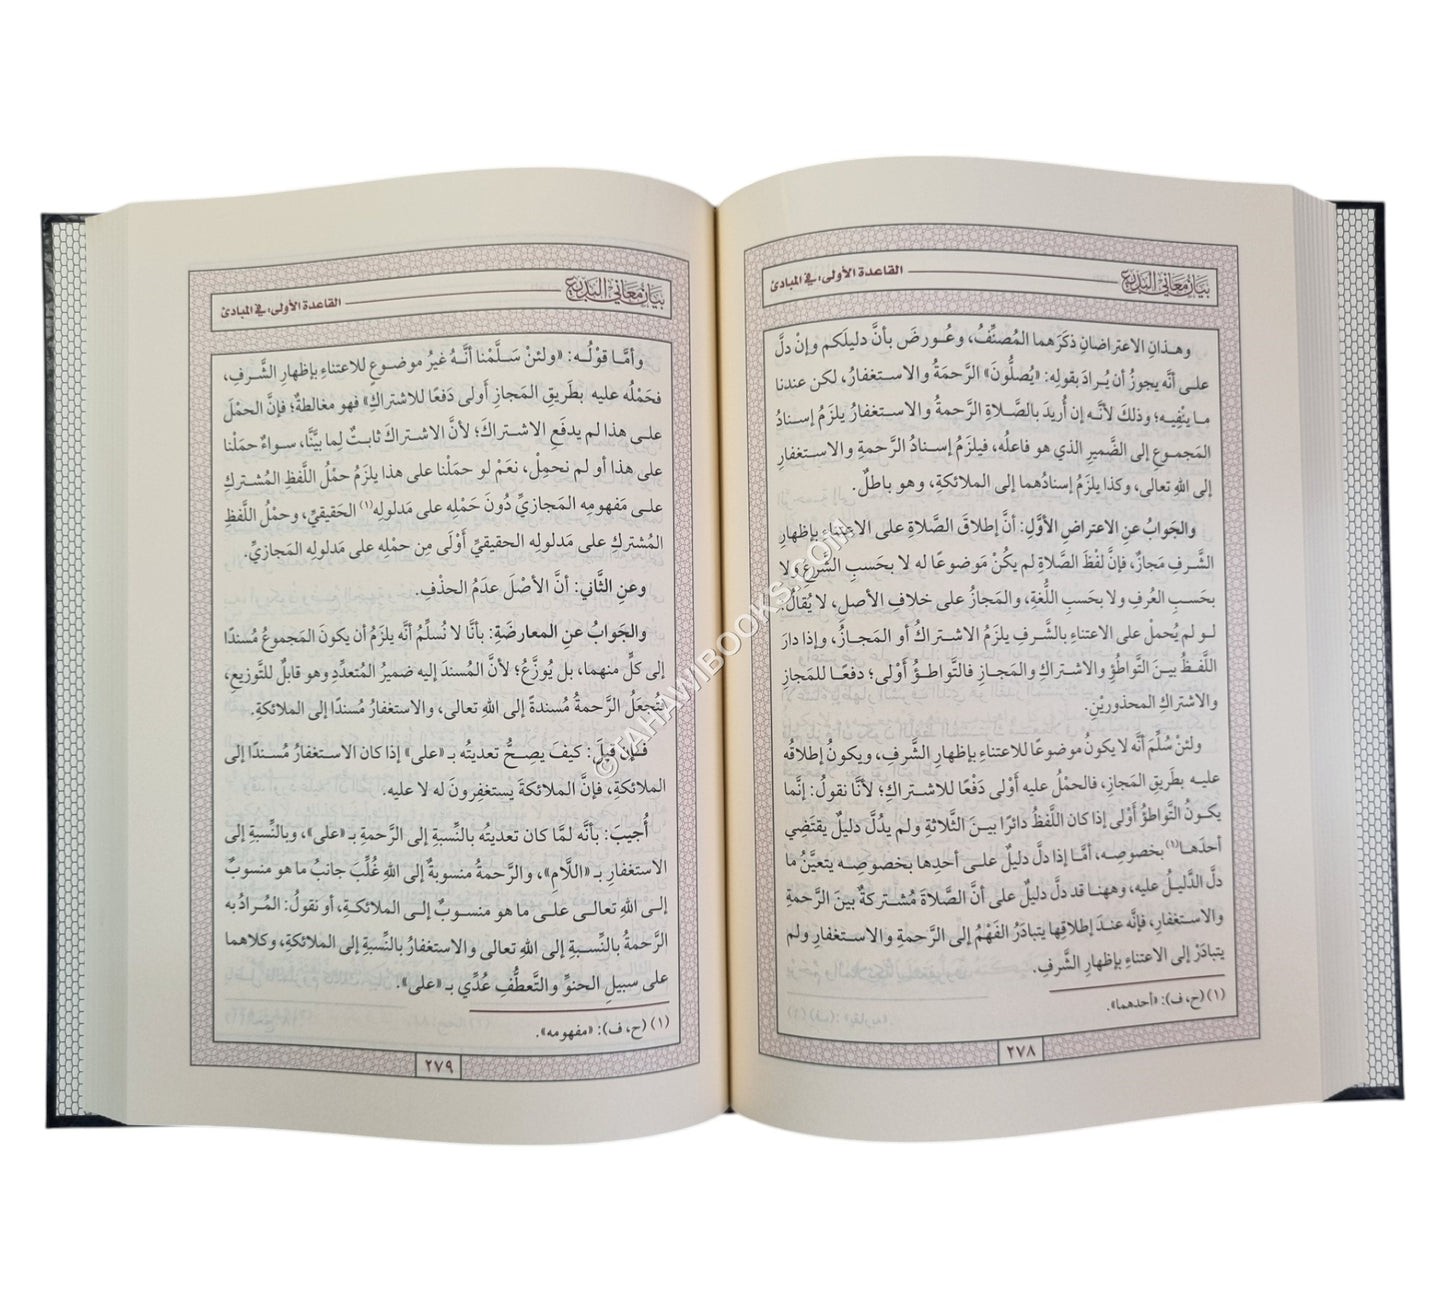 بيان معاني البديع
القاعدة الأولى: في المبادئ
وهذانِ الاعتراضانِ ذكَرَهما المُصنِّفُ، وعُورضَ بأنَّ دليلَكم وإنْ دلَّ
على أنَّه يجوزُ أن يُرادَ بقولِه: «يُصلُّونَ» الرَّحمَةُ والاستغفارُ، لكن عندنا
ما ينْفِيه؛ وذلكَ لأنَّه إن أُريدَ بالصَّلاةِ الرَّحمةُ والاستغفارُ يلزَمُ إسنادُ
المَجموعِ إلى الضَّميرِ الذي هو فاعلُه، فيلزَمُ إسنادُ الرَّحمةِ والاستغفارِ
إلى اللهِ تعالى، وكذا يلزَمُ إسنادُهما إلى الملائكةِ، وهو باطلٌ.
والجَوابُ عنِ الاعتراضِ الأوَّلِ: أنَّ إطلاقَ الصَّلاةِ على الاعتناءِ بإظهارِ
الشَّرفِ مَجازٌ، فإنَّ لفْظَ الصَّلاةِ لم يكُنْ مَوضوعًا له لا بحَسبِ الشَّرعِ ولا
بحَسبِ العُرفِ ولا بحَسبِ اللُّغةِ، والمَجازُ على خلافِ الأصلِ، لا يُقالُ:
لو لم يُحملْ على الاعتناءِ بالشَّرفِ يلزَمُ الاشتراكُ أو المَجازُ، وإذا دارَ
اللَّفظُ بينَ التَّواطُؤِ والاشتراكِ والمَجازِ فالتَّواطؤُ أَوْلى؛ دفعًا للمَجازِ
والاشتراكِ المحذوريْنِ.
ولئنْ سُلِّمَ أنَّه لا يكونُ موضوعًا للاعتناءِ بإظهارِ الشَّرفِ، ويكونُ إطلاقُه
عليه بطَريقِ المَجازِ، فالحمْلُ عليه أَوْلى دَفْعًا للاشتراكِ؛ لأنَّا نقولُ: إنَّما
يكونُ التَّواطؤُ أَوْلى إذا كان اللَّفظُ دائرًا بينَ الثَّلاثةِ ولم يدُلَّ دليلٌ يقتَضِي
أحدَها(١) بخصوصِه، أمَّا إذا دلَّ دليلٌ على أحدِها بخصوصِه يتعيَّنُ ما
دلَّ الدَّليلُ عليه، وههنا قد دلَّ دليلٌ على أنَّ الصَّلاةَ مُشتركةٌ بينَ الرَّحمةِ
والاستغفارِ، فإنَّه عندَ إطلاقِها يتبادَرُ الفَهْمُ إلى الرَّحمةِ والاستغفارِ ولم
يتبادَرْ إلى الاعتناءِ بإظهارِ الشَّرفِ.
(١) (ح، ف): «أحدهما».
٢٧٨
بيان معاني البديع
القاعدة الأولى: في المبادئ
وأمَّا قوْلُه: «ولئنْ سَلَّمْنا أنَّهُ غيرُ موضوعٍ للاعتناءِ بإظهارِ الشَّرفِ،
فحَمْلُه عليه بطَريقِ المَجازِ أَولى دَفعًا للاشتراكِ» فهو مغالطةٌ؛ فإنَّ الحمْلَ
على هذا لم يدفَعِ الاشتراكَ؛ لأنَّ الاشتراكَ ثابتٌ لِما بيَّنَّا، سواءٌ حمَلْنا
على هذا أو لم نحمِلْ، نعَمْ لو حمَلْنا على هذا يلزَمُ حمْلُ اللَّفظِ المُشتركِ
على مَفهومِه المَجازيِّ دُونَ حَمْلِه على مَدلولِه(١) الحَقيقيِّ، وحمْلُ اللَّفظِ
المُشتركِ على مَدلولِه الحقيقيِّ أَوْلَى مِن حمْلِه على مَدلولِه المَجازيِّ.
وعنِ الثَّاني: أنَّ الأصْلَ عدَمُ الحذْفِ.
والجَوابُ عنِ المعارضَةِ: بأنَّا لا نُسلِّمُ أنَّه يلزَمُ أن يكونَ المَجموعُ مُسندًا
إلى كلٍّ منهما، بل يُوزَّعُ؛ لأنَّ المُسندَ إليه ضميرُ المُتعدِّدِ وهو قابلٌ للتَّوزيعِ،
فتُجعَلُ الرَّحمةُ مُسندةً إلى اللهِ تعالى، والاستغفارُ مُسندًا إلى الملائكةِ.
فإن قيلَ: كيفَ يصِحُّ تعديتُه بـ «على» إذا كان الاستغفارُ مُسندًا إلى
الملائكةِ، فإنَّ الملائكةَ يستغفِرونَ له لا عليه.
أُجيبَ: بأنَّه لمَّا كان تعديتُه بالنِّسبةِ إلى الرَّحمةِ بـ «على»، وبالنِّسبةِ إلى
الاستغفارِ بـ «اللَّامِ»، والرَّحمةُ منسوبةٌ إلى اللهِ غُلِّبَ جانبُ ما هو منسوبٌ
إلى اللهِ تعالى على ما هو منسوبٌ إلى الملائكةِ، أو نقولُ: المُرادُ به
الرَّحمةُ بالنِّسبةِ إلى اللهِ تعالى والاستغفارُ بالنِّسبةِ إلى الملائكةِ، وكلاهما
على سبيلِ الحنوِّ والتَّعطُّفِ عُدِّي بـ «على».
(١) (ح، ف): «مفهومه».
٢٧٩
©TAHAWIBOOKS.COM